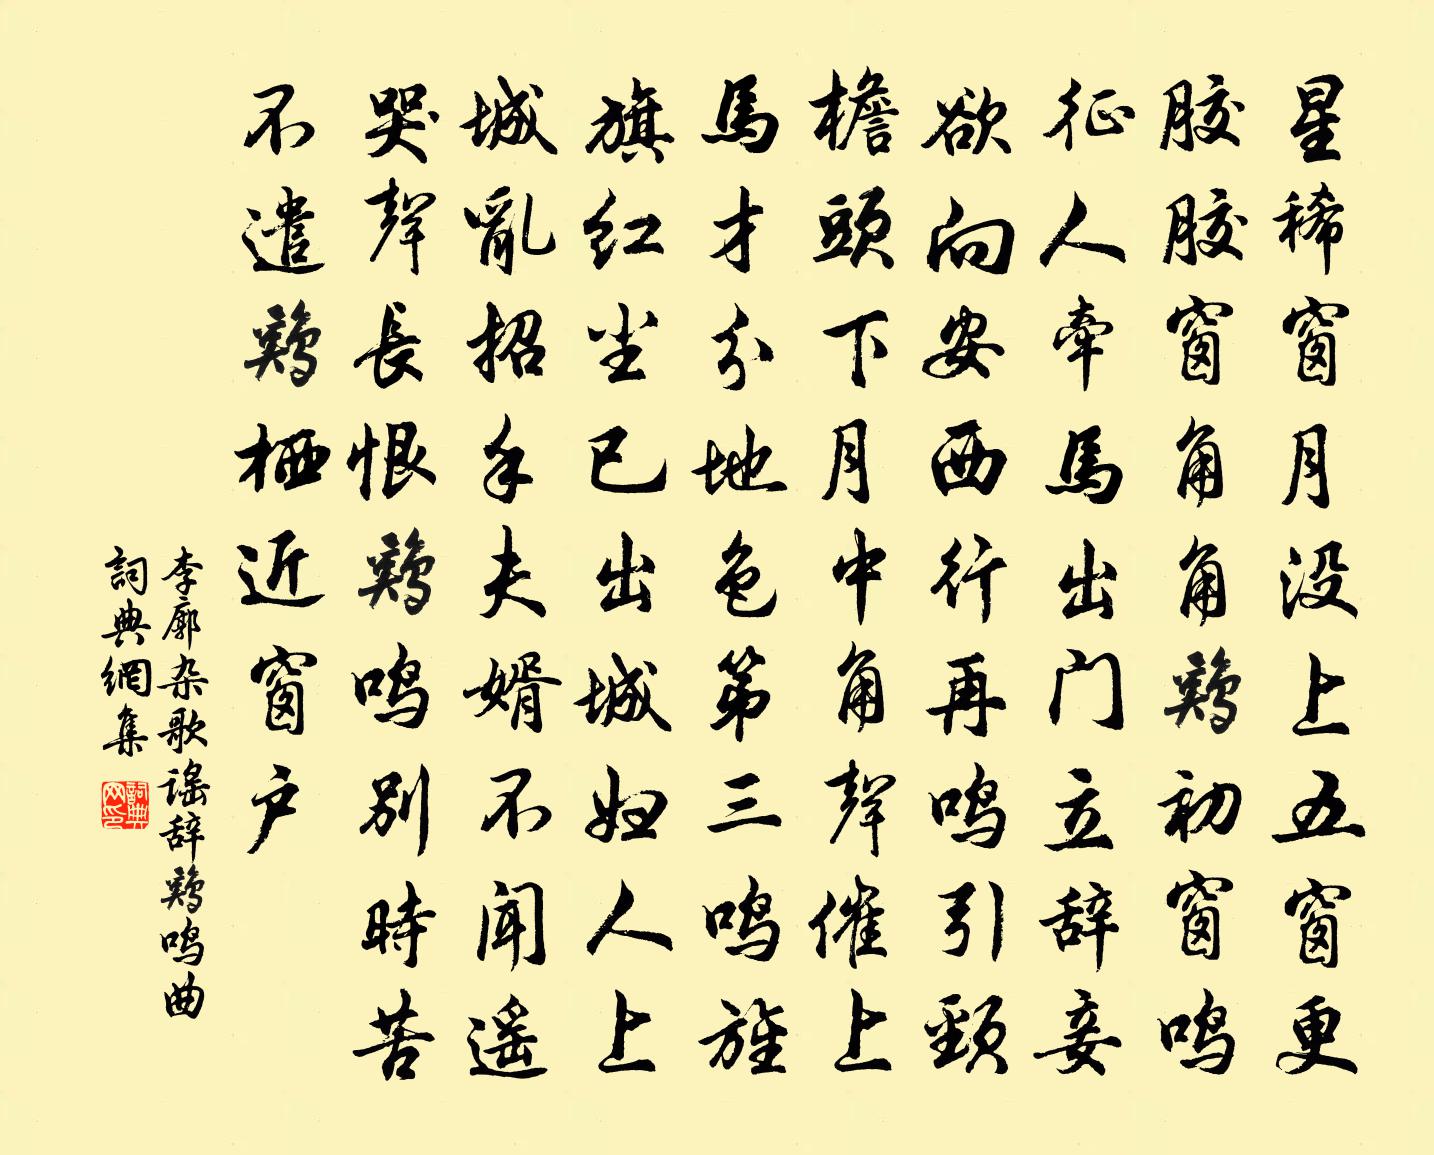 星稀窗月没上五窗更
胶胶窗角角鷄初窗鸣
征人牵馬出门立辞妾
欲向安西行再鸣引頸
檐頭下月中角聲催上
馬才分地色第三鸣旌
旗红尘已出城妇人上
城亂招手夫婿不闻遥
哭聲長恨鷄鸣别時苦
不遣鷄栖近窗户
李廓杂歌谣辞鷄鸣曲
詞典網集
詞典网印